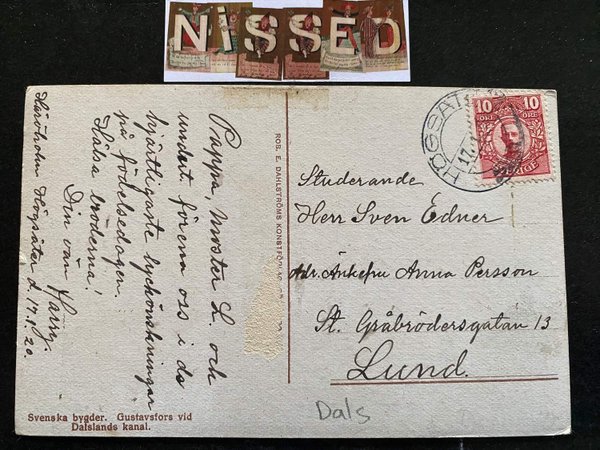 NiSSED
Pappa, Moster L. och
undert. förena oss i de
hjärtligaste lyckönskningar
på födelsedagen.
Hälsa bröderna!
Din vän Harry.
Högsäter d. 17.1.20.
ROB. E. DAHLSTRÖMS
HÖGSÄTER
17.
10 10
ÖRE ÖRE
SVERIGE
Studerande
Herr Sven Edner
Adr. Änkefru Anna Persson
St. Gråbrödersgatan 13
Lund.
Svenska bygder. Gustavsfors vid
Dalslands kanal.
Dals